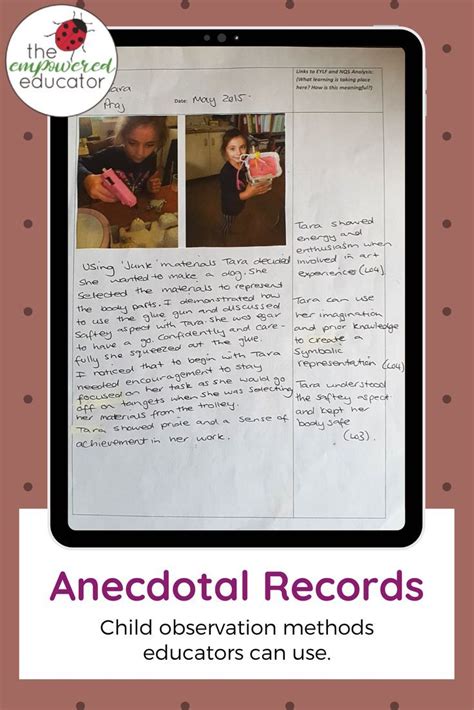 the
empowered
educator
Tara
Praj
Date: May 2015.
Links to EYLF and NQS Analysis:
(What learning is taking place
here? How is this meaningful?)
Using 'junk' materials Tara decided
she wanted to make a dog. She
selected the materials to represent
the body parts. I demonstrated how
to use the glue gun and discussed
saftey aspect with Tara. She was egar
to have a go. Confidently and care-
fully she squeezed out the glue.
I noticed that to begin with Tara
needed encouragement to stay
focused on her task as she would go
off on tangets when she was selecting
her materials from the trolley.
Tara showed pride and a sense of
achievement in her work.
Tara showed
energy and
enthusiasm when
involved in art
experiences (LO4)
Tara can use
her imagination
and prior knowledge
to create a
symbolic
representation (LO4)
Tara understood
the saftey aspect
and kept her
body safe
(LO3).
Anecdotal Records
Child observation methods
educators can use.